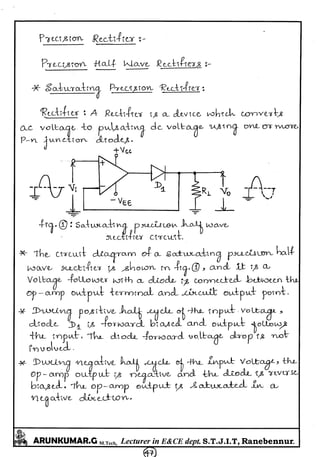 Precision Rectifier :-
Precision Half Wave Rectifiers :-
* Saturating Precision Rectifier :
Rectifier : A Rectifier is a device which converts
a.c voltage to pulsating dc voltage using one or more
P-n junction diodes.
+Vcc
+
-
Vi
D1
RL
Vo
- VEE
fig.① : Saturating precision half wave
rectifier circuit.
* The circuit diagram of a saturating precision half
wave rectifier is shown in fig.①, and it is a
Voltage follower with a diode is connected between the
op-amp output terminal and circuit output point.
* During positive half cycle of the input voltage,
diode D1 is forward biased and output follows
the input. The diode forward voltage drop is not
involved.
* During negative half cycle of the Input Voltage, the
op-amp output is negative and the diode is reverse
biased. The op-amp output is saturated in a
negative direction.
ARUNKUMAR.G M.Tech, Lecturer in E&CE dept. S.T.J.I.T, Ranebennur.
47